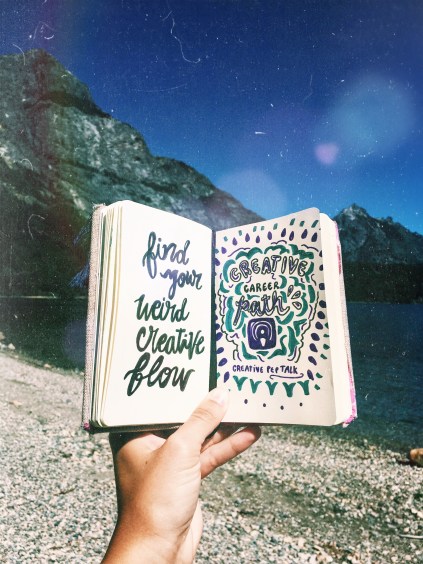 find
your
weird
creative
flow
CREATIVE
CAREER
path's
CREATIVE PEP TALK